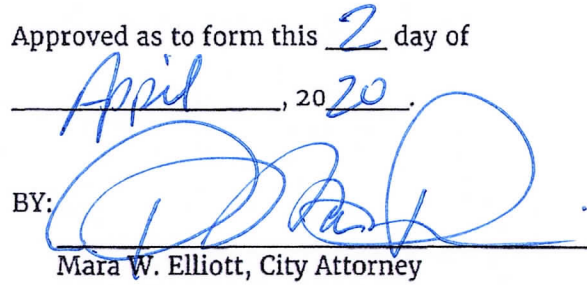 Approved as to form this 2 day of
April, 2020.
BY:
Mara W. Elliott, City Attorney